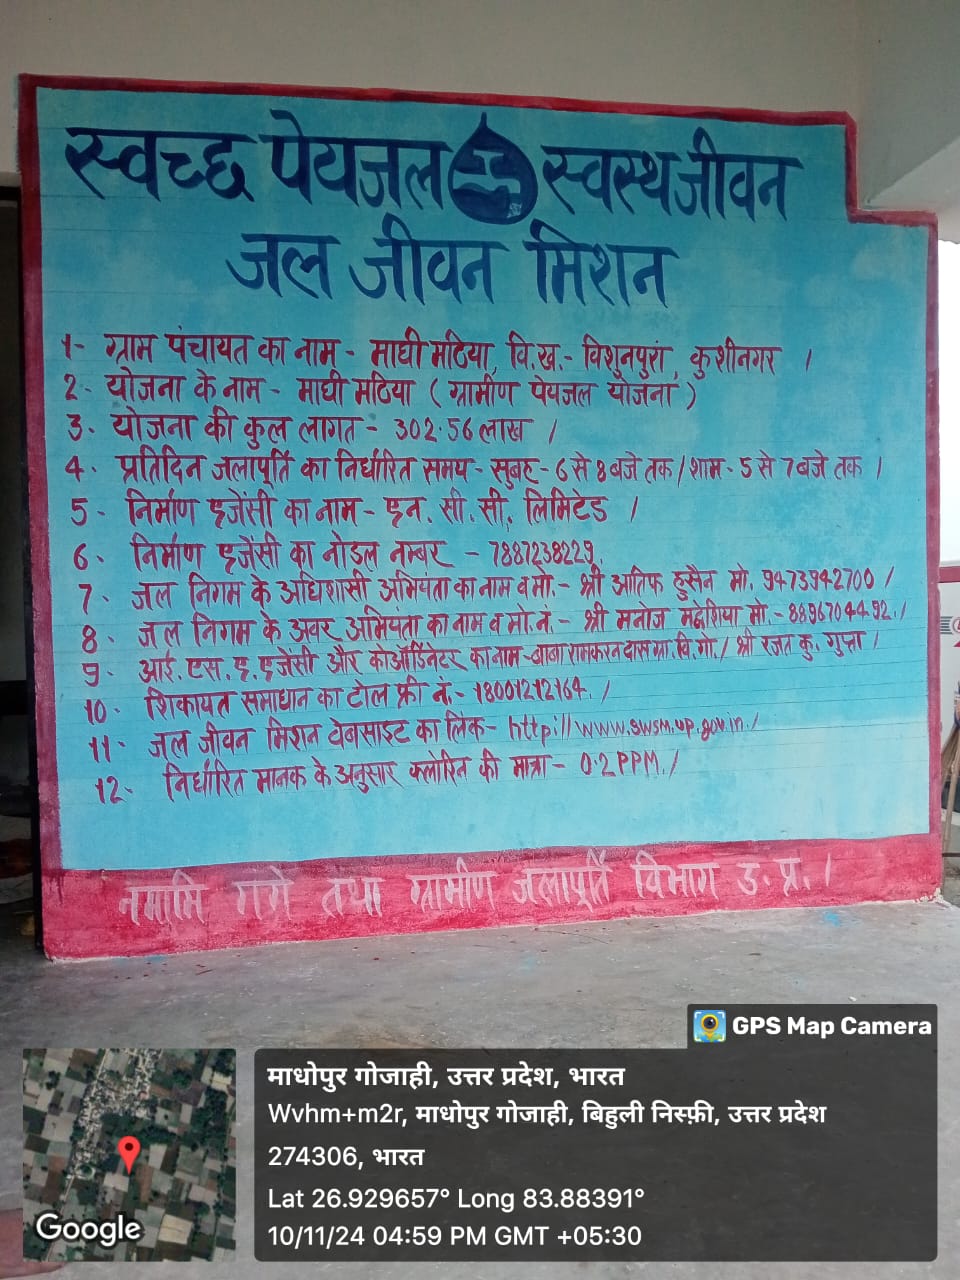 स्वच्छ पेयजल स्वस्थ जीवन
जल जीवन मिशन
1- ग्राम पंचायत का नाम - माघी मठिया, वि.ख.- विशुनपुरा, कुशीनगर ।
2- योजना के नाम - माघी मठिया ( ग्रामीण पेयजल योजना )
3- योजना की कुल लागत - 302.56 लाख ।
4- प्रतिदिन जलापूर्ति का निर्धारित समय - सुबह - 6 से 8 बजे तक / शाम - 5 से 7 बजे तक ।
5- निर्माण एजेंसी का नाम - एन. सी. सी. लिमिटेड ।
6- निर्माण एजेंसी का नोडल नम्बर - 7887238229.
7- जल निगम के अधिशासी अभियंता का नाम व मो.- श्री आतिफ हुसैन मो. 9473942700 /
8- जल निगम के अवर अभियंता का नाम व मो.नं.- श्री मनोज मद्देशिया मो.- 8896704492. /
9- आई. एस. ए. एजेंसी और कोऑर्डिनेटर का नाम - बाबा रामकरन दास ग्रा. वि. गो. / श्री रजत कु. गुप्ता /
10- शिकायत समाधान का टोल फ्री नं.- 18001212164. /
11- जल जीवन मिशन वेबसाइट का लिंक - http://www.swsm.up.gov.in./
12- निर्धारित मानक के अनुसार क्लोरिन की मात्रा - 0.2 PPM. /
नमामि गंगे तथा ग्रामीण जलापूर्ति विभाग उ. प्र. ।
GPS Map Camera
माधोपुर गोजाही, उत्तर प्रदेश, भारत
Wvhm+m2r, माधोपुर गोजाही, बिहुली निस्फ़ी, उत्तर प्रदेश
274306, भारत
Lat 26.929657° Long 83.88391°
10/11/24 04:59 PM GMT +05:30
Google